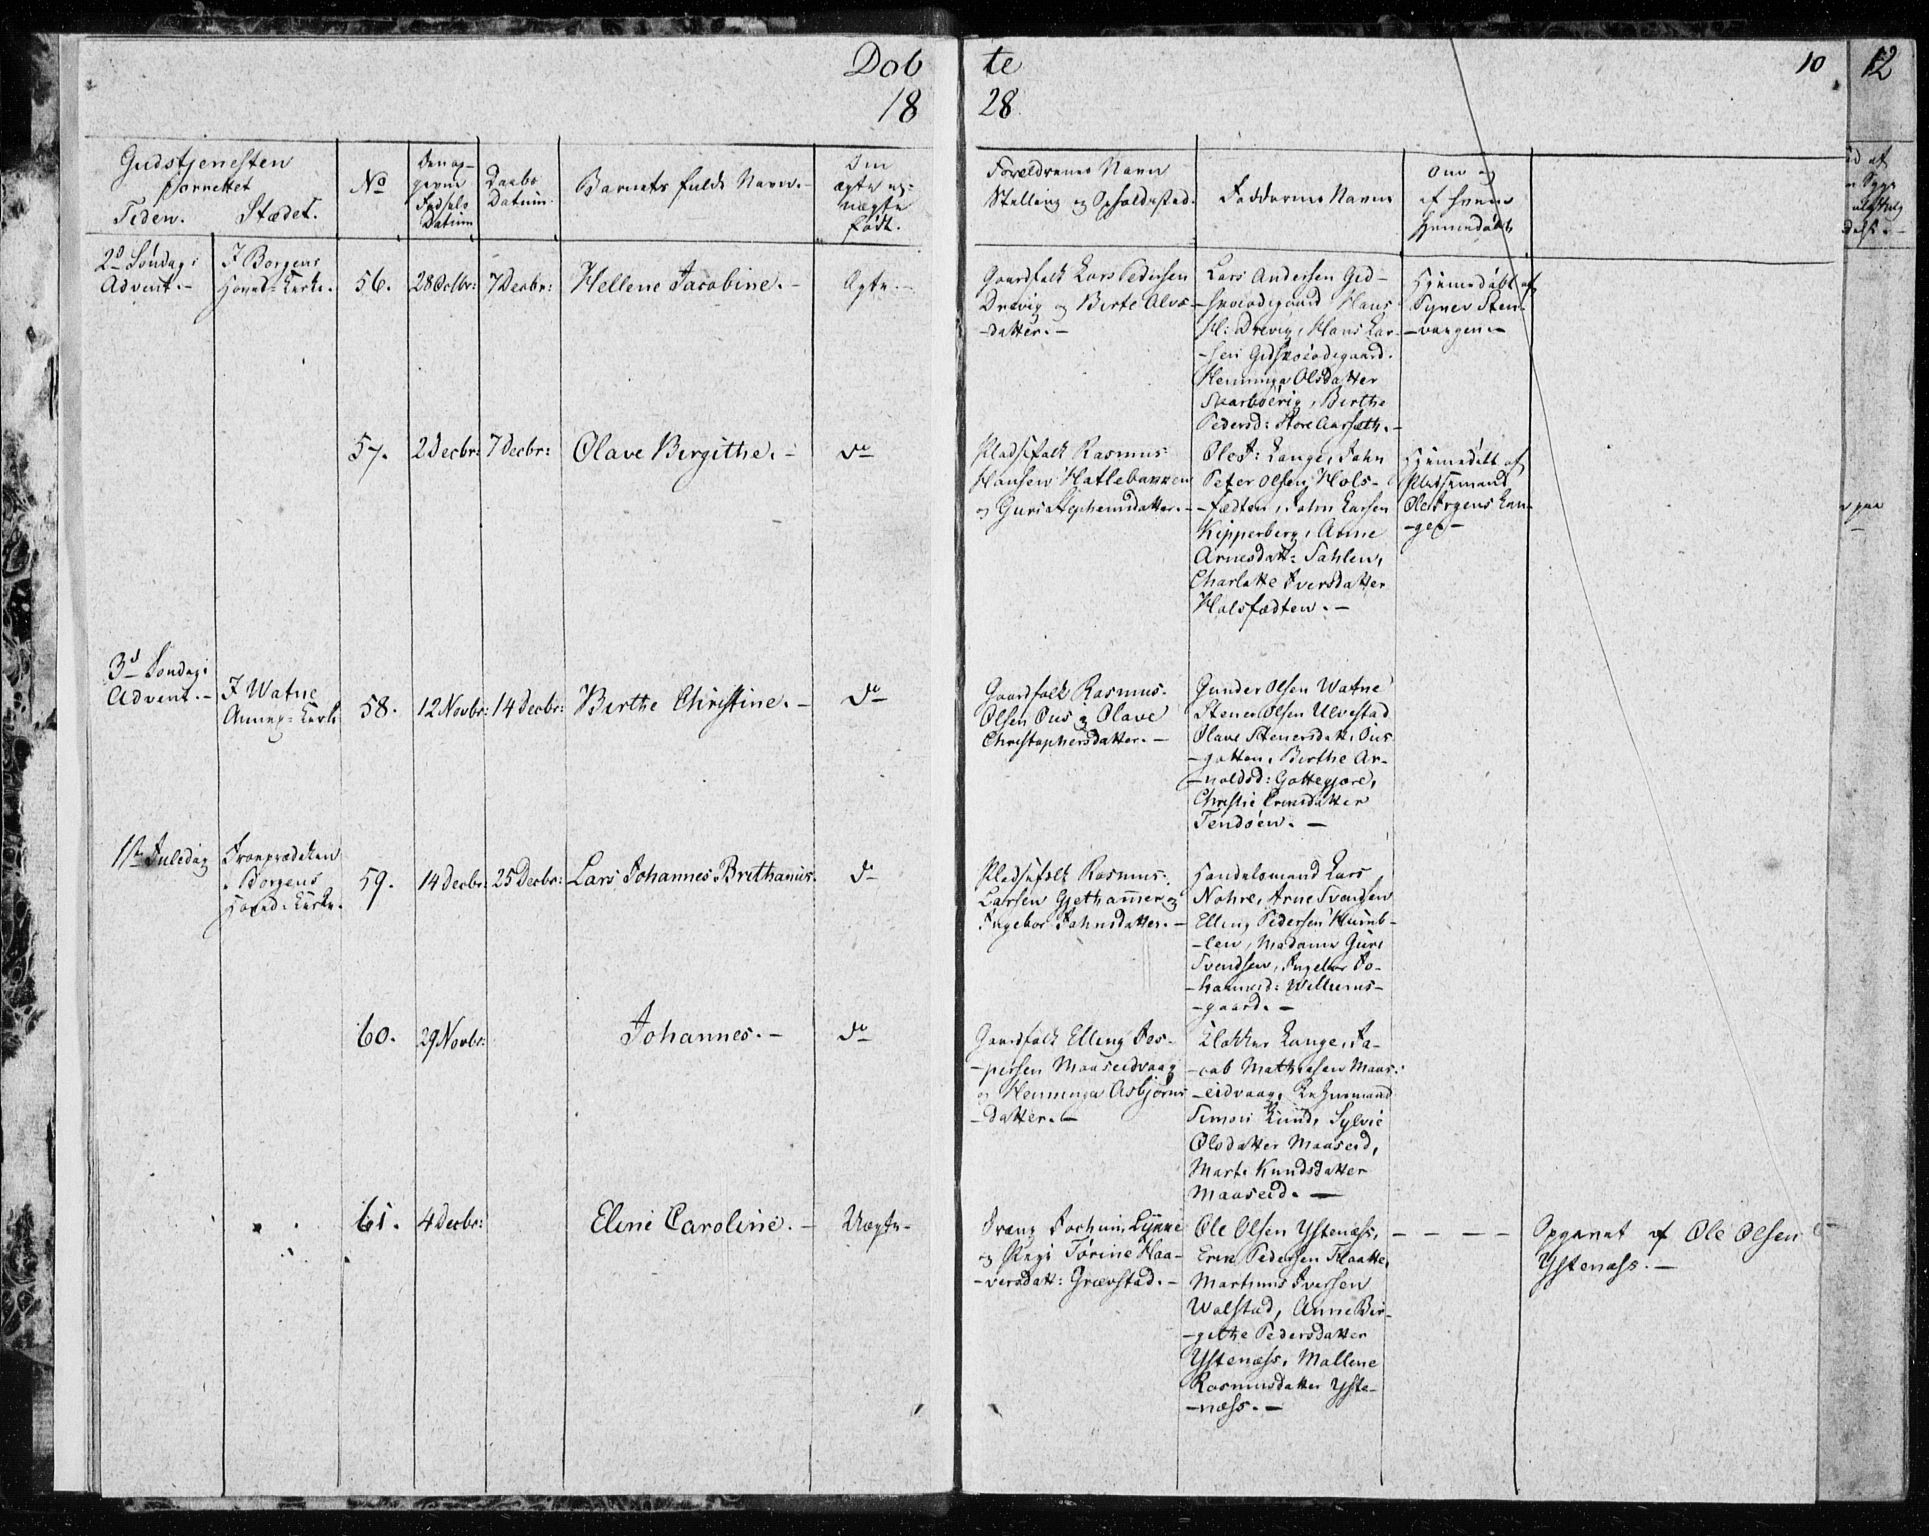 Dob te
18 28
10
12
Gudstjenesten
forrettet
Tiden. Stædet.
No
Den op-
givne
Fødsels
Datum
Daabs
Datum
Barnets fulde Navn.-
Om
ægte ell:
uægte
født.
Forældrenes Navn
Stilling og Opholdssted.
Faddernes Navne
Om og
af hvem
hjemedøbt
2d Søndag i
Advent.-
I Borgens
Hoved-Kirke.
56.
28 Octbr:
7 Decbr:
Hellene Jacobine.-
Ægte.-
Gaardfolk Lars Pedersen
Drevig og Berte Alvs-
-datter.-
Lars Andersen Gid-
-skeiødegaard Hans
H: Drevig, Hans Lar-
-sen Gidskeiødegaard.
Henninga Olsdatter
Skarbøevig, Birthe
Pedersd: Store Aarsæth.-
Hjemedøbt af
Synev Sten-
-vaagen.-
57.
2 Decbr:
7 Decbr:
Olave Birgithe.-
do
Pladsfolk Rasmus
Hansen Hatlebakken
og Guria Stephensdatter.-
Ole J: Lange, John
Peter Olsen Hols-
-fædten, John Larsen
Kipperberg, Anne
Arnesdatt: Dahlen,
Charlotte Iversdatter
Holsfædten.-
Hjemedøbt af
Pladsemand
Ole Jrgens Lan-
-ge.-
3d Søndag i
Advent.-
I Watne
Annex-Kirke
58.
12 Novbr:
14 Decbr:
Birthe Christine.-
do
Gaardfolk Rasmus
Olsen Øus og Olave
Christophersdatter.-
Gunder Olsen Watne
Stener Olsen Ulvestad
Olave Stenersdatt: Øus
Birthe Ar-
-noldsd: Gottegjøre,
Christie Ernsdatter
Tendøen.-
1ste Juledag
Froeprædeken
i Borgens
Hoved-Kirke.
59.
14 Decbr:
25 Decbr:
Lars Johannes Brithanius.
do
Pladsfolk Rasmus
Larsen Gjethammer og
Ingebor Johnsdatter.-
Handelsmand Lars
Nohre, Arne Svendsen
Elling Pedersen Humb-
-len, Madame Guri
Svendsen, Ingebor Jo-
-hannesd: Willums-
-gaard.-
60.
29 Novbr:
Johannes.-
do
Gaardfolk Elling Jes-
-persen Maaseidvaag
og Henninga Asbjørns
-datter.-
Klokker Lange, Ja-
-cob Mathiasen Maas-
-eidvaag,
Simon Knud, Sylvie
Olsdatter Maaseid,
Marte Knudsdatter
Maaseid.-
61.
4 Decbr:
Eline Caroline.-
Uægte-
Franz Jochum Lynne
og Ingi Torine Haa-
-versdatt: Grævstad.-
Ole Olsen Ystenæss,
Erik Pedersen Flaatte,
Martinus Iversen
Walstad, Anne Bir-
-gethe Pedersdatter
Ystenæss, Mallene
Rasmusdatter Yste-
-næss.-
- - - -
Opgivet af Ole Olsen
Ystenæss.-